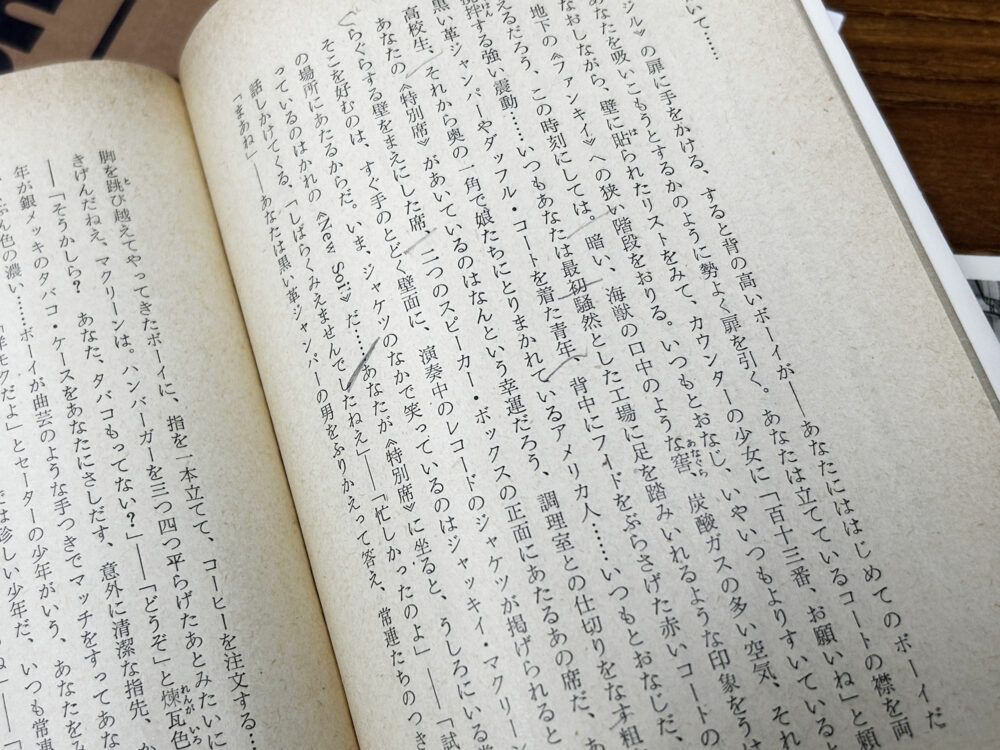 いて……
ジル》の扉に手をかける、すると背の高いボーイが――あなたにははじめてのボーイだ
あなたを吸いこもうとするかのように勢よく扉を引く。あなたは立てているコートの襟を両
なおしながら、壁に貼られたリストをみて、カウンターの少女に「百十三番、お願いね」と頼
地下の《ファンキイ》への狭い階段をおりる。いつもとおなじ、いやいつもよりすいている
えるだろう、この時刻にしては。暗い、海獣の口中のような窖、炭酸ガスの多い空気、それ
撹拌する強い震動……いつもあなたは最初騒然とした工場に足を踏みいれるような印象をう
黒い革ジャンパーやダッフル・コートを着た青年、背中にフードをぶらさげた赤いコートの
高校生、それから奥の一角で娘たちにとりまかれているアメリカ人……いつもとおなじだ、
あなたの《特別席》があいているのはなんという幸運だろう、調理室との仕切りをなす粗
ぐらぐらする壁をまえにした席、二つのスピーカー・ボックスの正面にあたるあの席だ、あ
そこを好むのは、すぐ手のとどく壁面に、演奏中のレコードのジャケツが掲げられると
の場所にあたるからだ。いま、ジャケツのなかで笑っているのはジャッキイ・マクリーン
っているのはかれの《New Soil》だ……あなたが《特別席》に坐ると、うしろにいる常
話しかけてくる、「しばらくみえませんでしたねえ」――「忙しかったのよ」――「試
「まあね」――あなたは黒い革ジャンパーの男をふりかえって答え、常連たちのつき
脚を跳び越えてやってきたボーイに、指を一本立てて、コーヒーを注文する…
きげんだねえ、マクリーンは。ハンバーガーを三つ四つ平らげたあとみたいに
――「そうかしら？　あなた、タバコもってない？」――「どうぞ」と煉瓦色
年が銀メッキのタバコ・ケースをあなたにさしだす、意外に清潔な指先、か
ぶん色の濃い……ボーイが曲芸のような手つきでマッチをすってあな
「洋モクだよ」とセーターの少年がいう、あなたをみ
では珍しい少年だ、いつも常